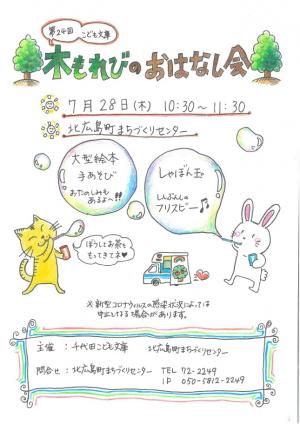 第24回 こども文庫
木もれびのおはなし会
7月28日(木) 10:30～11:30
北広島町まちづくりセンター
大型絵本
手あそび
おたのしみも
あるよ～!!
しゃぼん玉
しんぶんしの
フリスビー♪
ぼうしとお茶を
もってきてネ♥
※新型コロナウィルスの感染状況によっては
中止になる場合があります。
主催 : 千代田こども文庫 北広島町まちづくりセンター
問合せ : 北広島町まちづくりセンター TEL 72-2249
IP 050-5812-2249